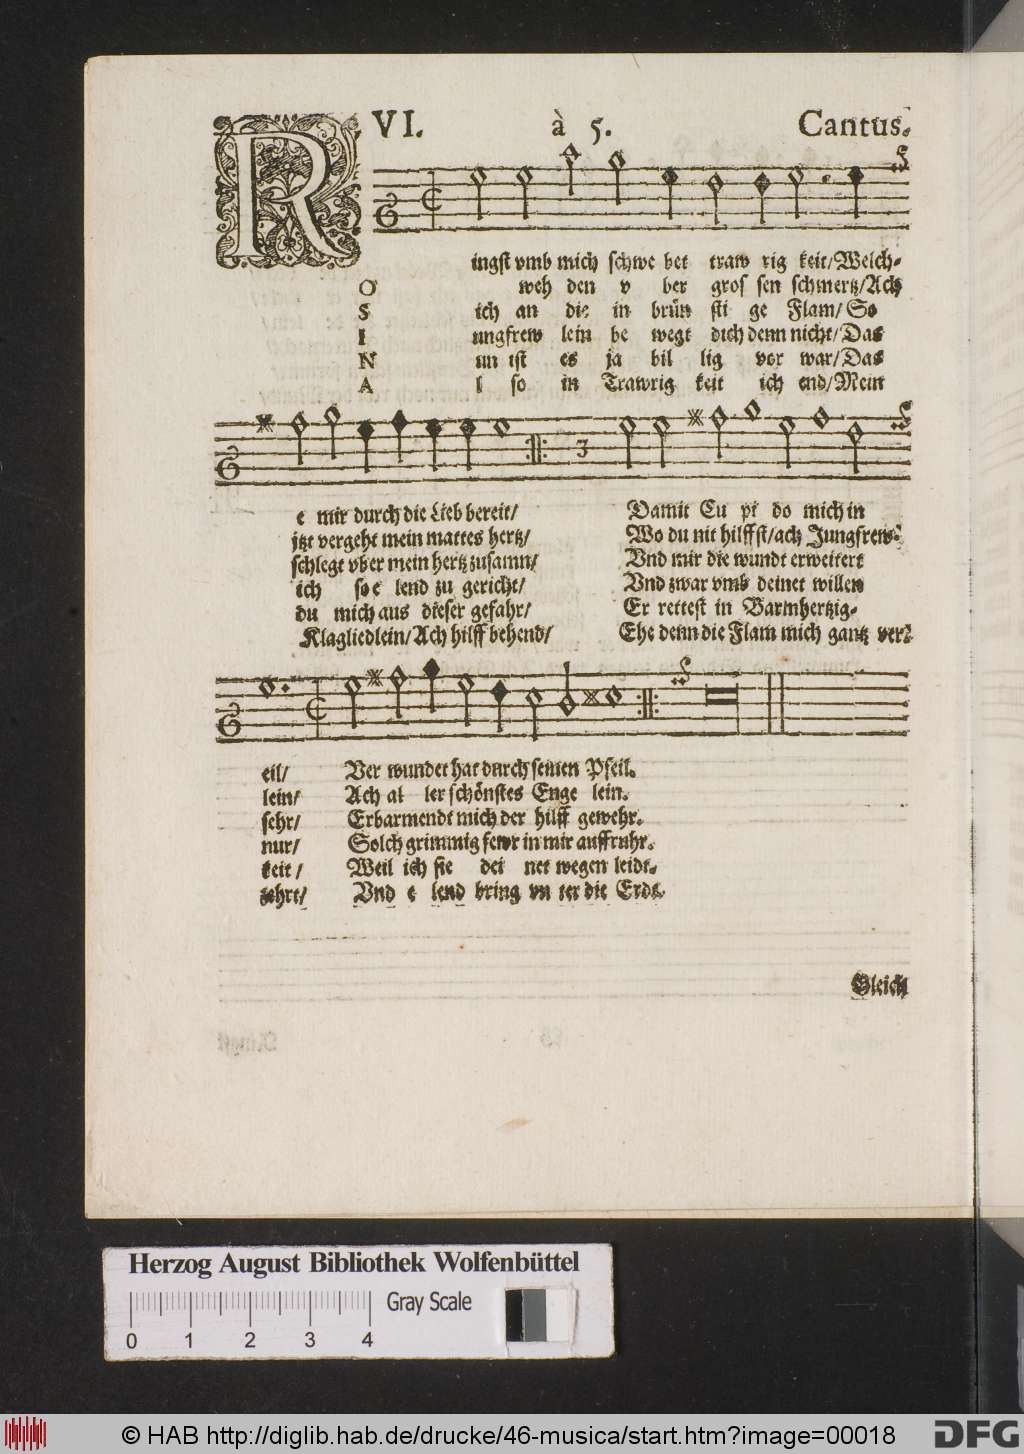 VI. à 5. Cantus.
R
ingst vmb mich schwe bet traw rig keit/Welch-
O weh den v ber gros sen schmertz/Ach
S ich an die in brün sti ge Flam/ So
I ungfrew lein be wegt dich denn nicht/Das
N un ist es ja bil lig vor war/Das
A l so in Trawrig keit ich end/Mein
3
e mir durch die Lieb bereit/ Damit Cu pi do mich in
jtzt vergeht mein mattes hertz/ Wo du nit hilffst/ach Jungfrew-
schlegt vber mein hertz zusamn/ Vnd mir die wundt erweitert
ich so e lend zu gericht/ Vnd zwar vmb deinet willen
du mich aus dieser gefahr/ Er rettest in Barmhertzig-
Klagliedlein/Ach hilff behend/ Ehe denn die Flam mich gantz ver-
eil/ Ver wundet hat durch seinen Pfeil.
lein/ Ach al ler schönstes Enge lein.
sehr/ Erbarmendt mich der hilff gewehr.
nur/ Solch grimmig fewr in mir auffruhr.
keit/ Weil ich sie dei net wegen leidt.
zehrt/ Vnd e lend bring vn ter die Erdt.
Gleich
Herzog August Bibliothek Wolfenbüttel
Gray Scale
0 1 2 3 4
© HAB http://diglib.hab.de/drucke/46-musica/start.htm?image=00018
DFG